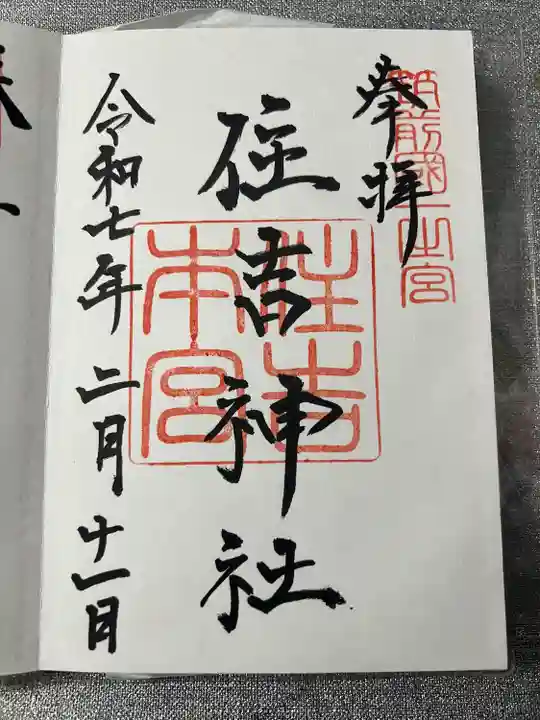 奉拝
筑前國一之宮
住吉神社
住吉本宮
令和七年 二月 十一日